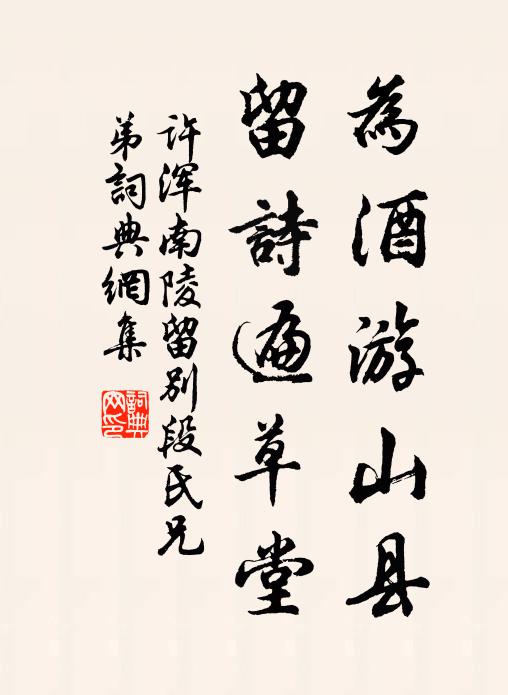 為酒游山县
留詩遍草堂
许渾南陵留别段氏兄
弟詞典網集
詞典
网印